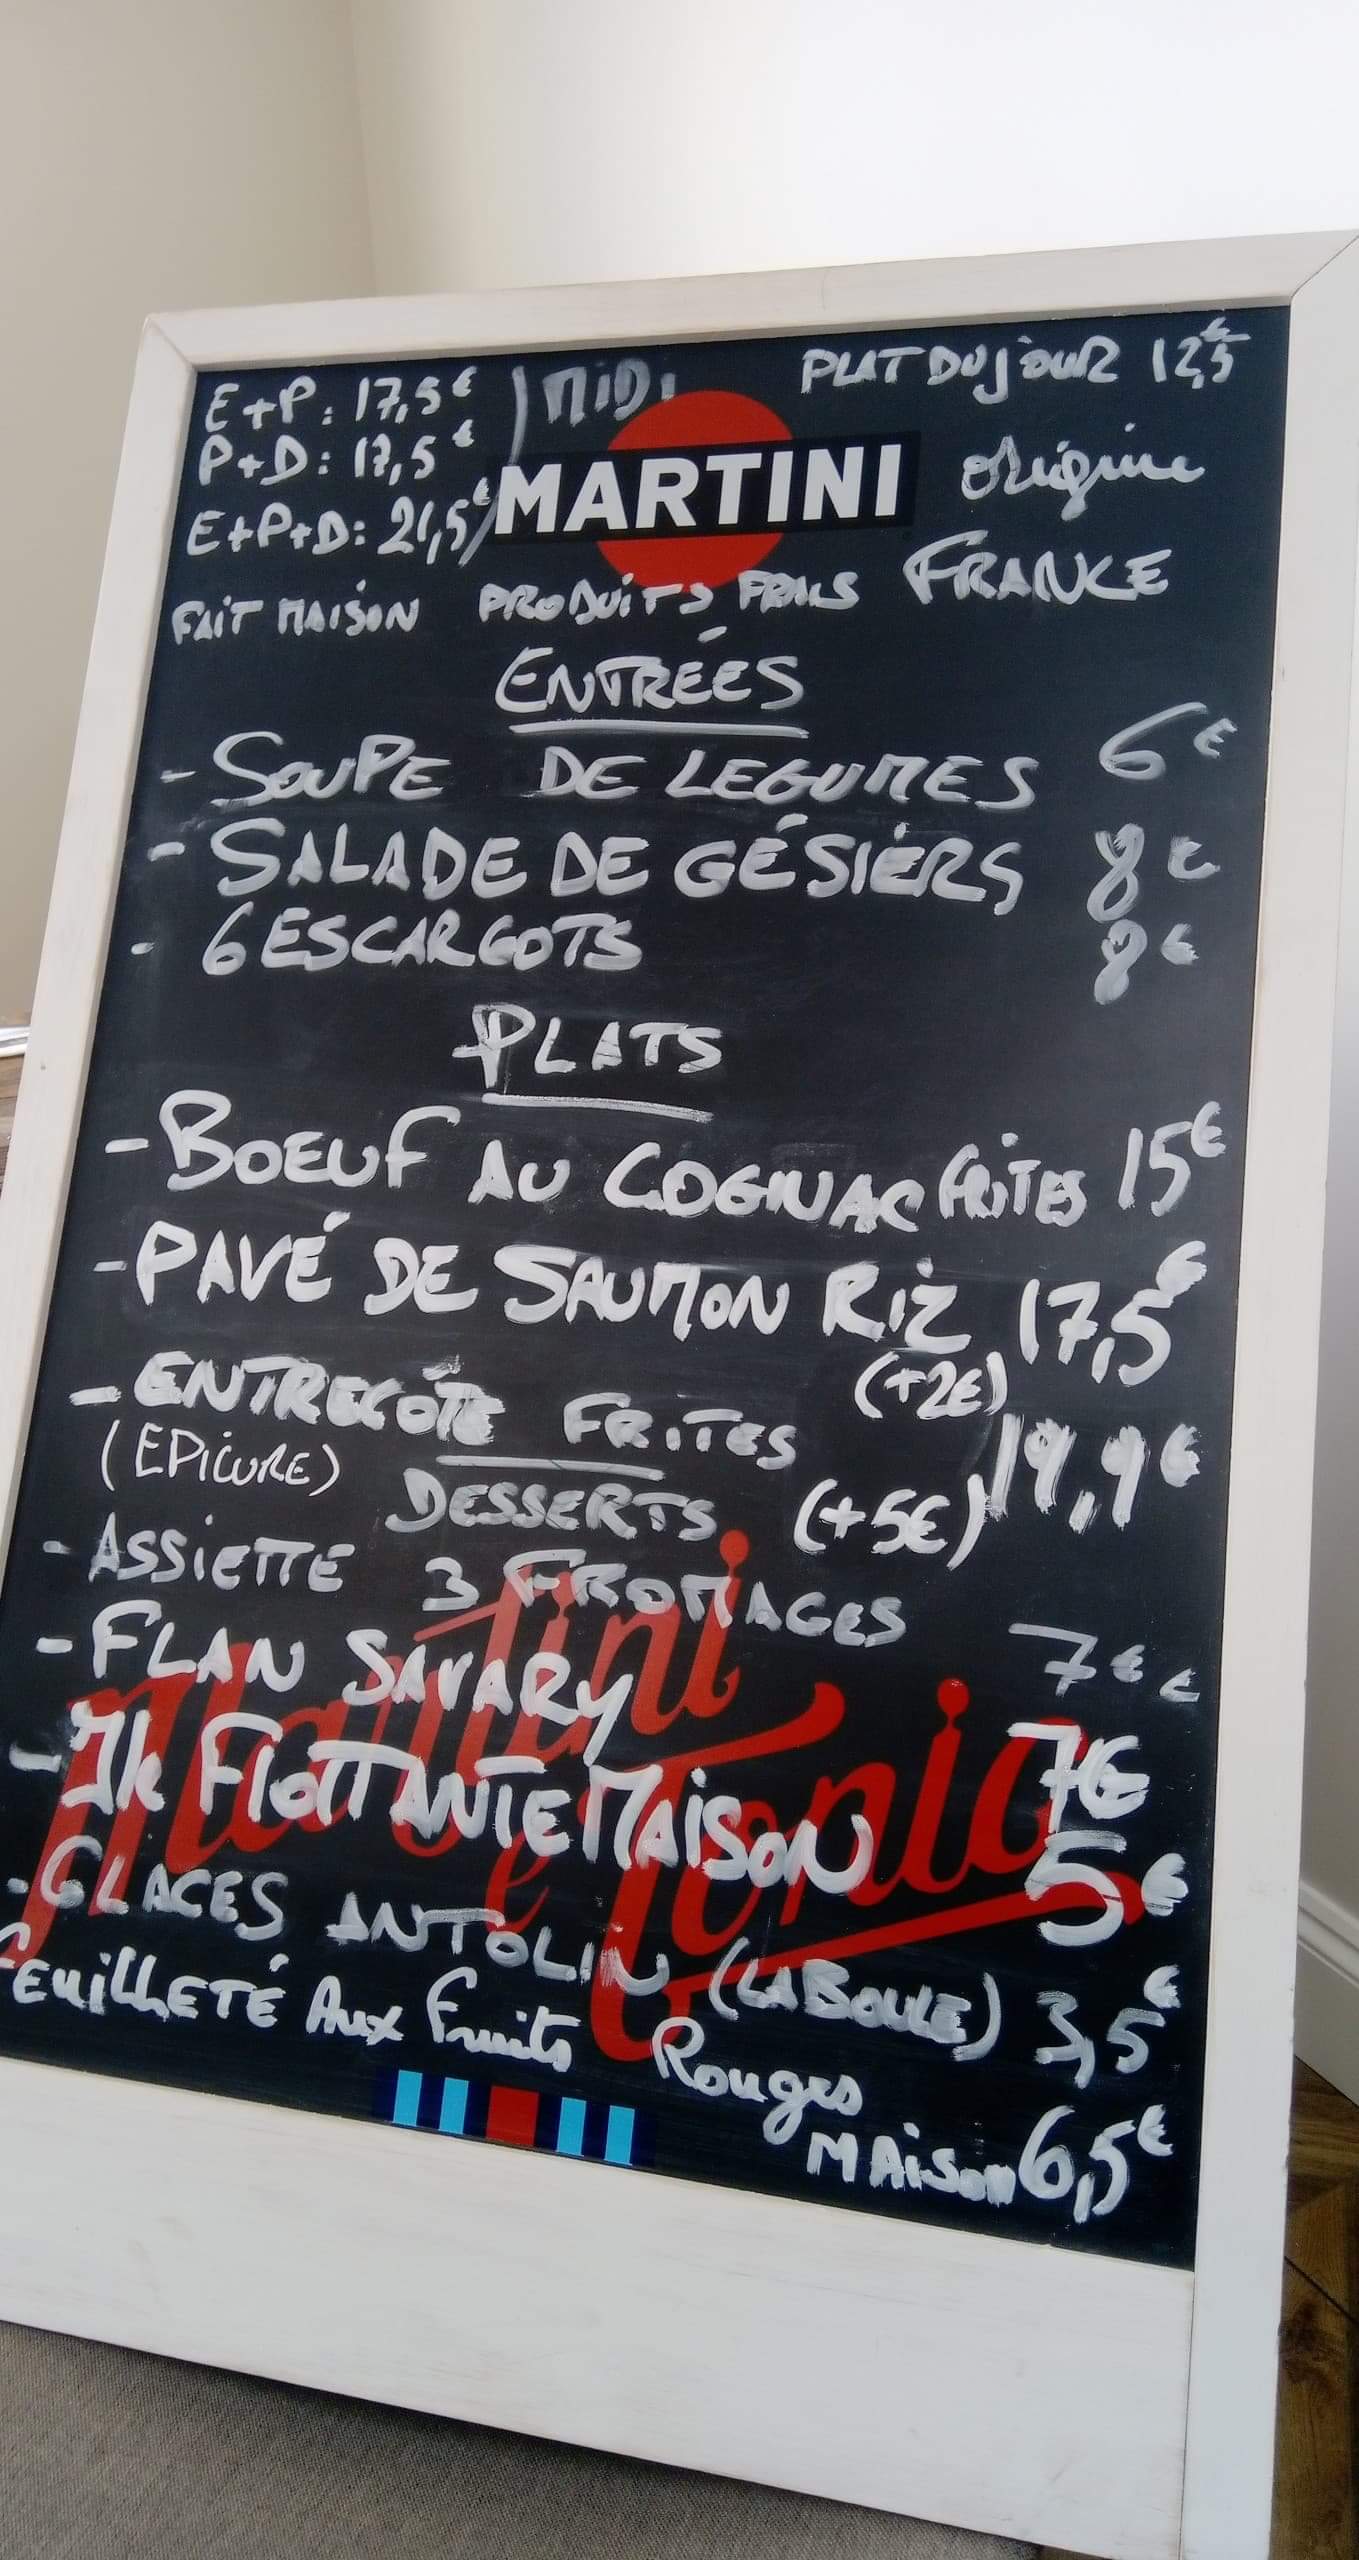 E+P: 17,5€ / MIDI
PLAT DU JOUR 12,5€
P+D: 17,5€
E+P+D: 21,5€
MARTINI
origine
FRANCE
FAIT MAISON PRODUITS FRAIS
ENTRÉES
- SOUPE DE LEGUMES 6€
- SALADE DE GÉSIERS 8€
- 6 ESCARGOTS 8€
PLATS
- BOEUF AU COGNAC FRITES 15€
- PAVÉ DE SAUMON RIZ 17,5€
(+2€)
- ENTRECÔTE FRITES 19,9€
(EPICURE)
DESSERTS (+5€)
- ASSIETTE 3 FROMAGES 7€
- FLAN SAVARY 7€
- Ile FlOTTANTE MAISON 5€
Martini e Tonic
- GLACES ANTOLIN (LA BOULE) 3,5€
FEUILLETÉ Aux Fruits Rouges
MAISON 6,5€